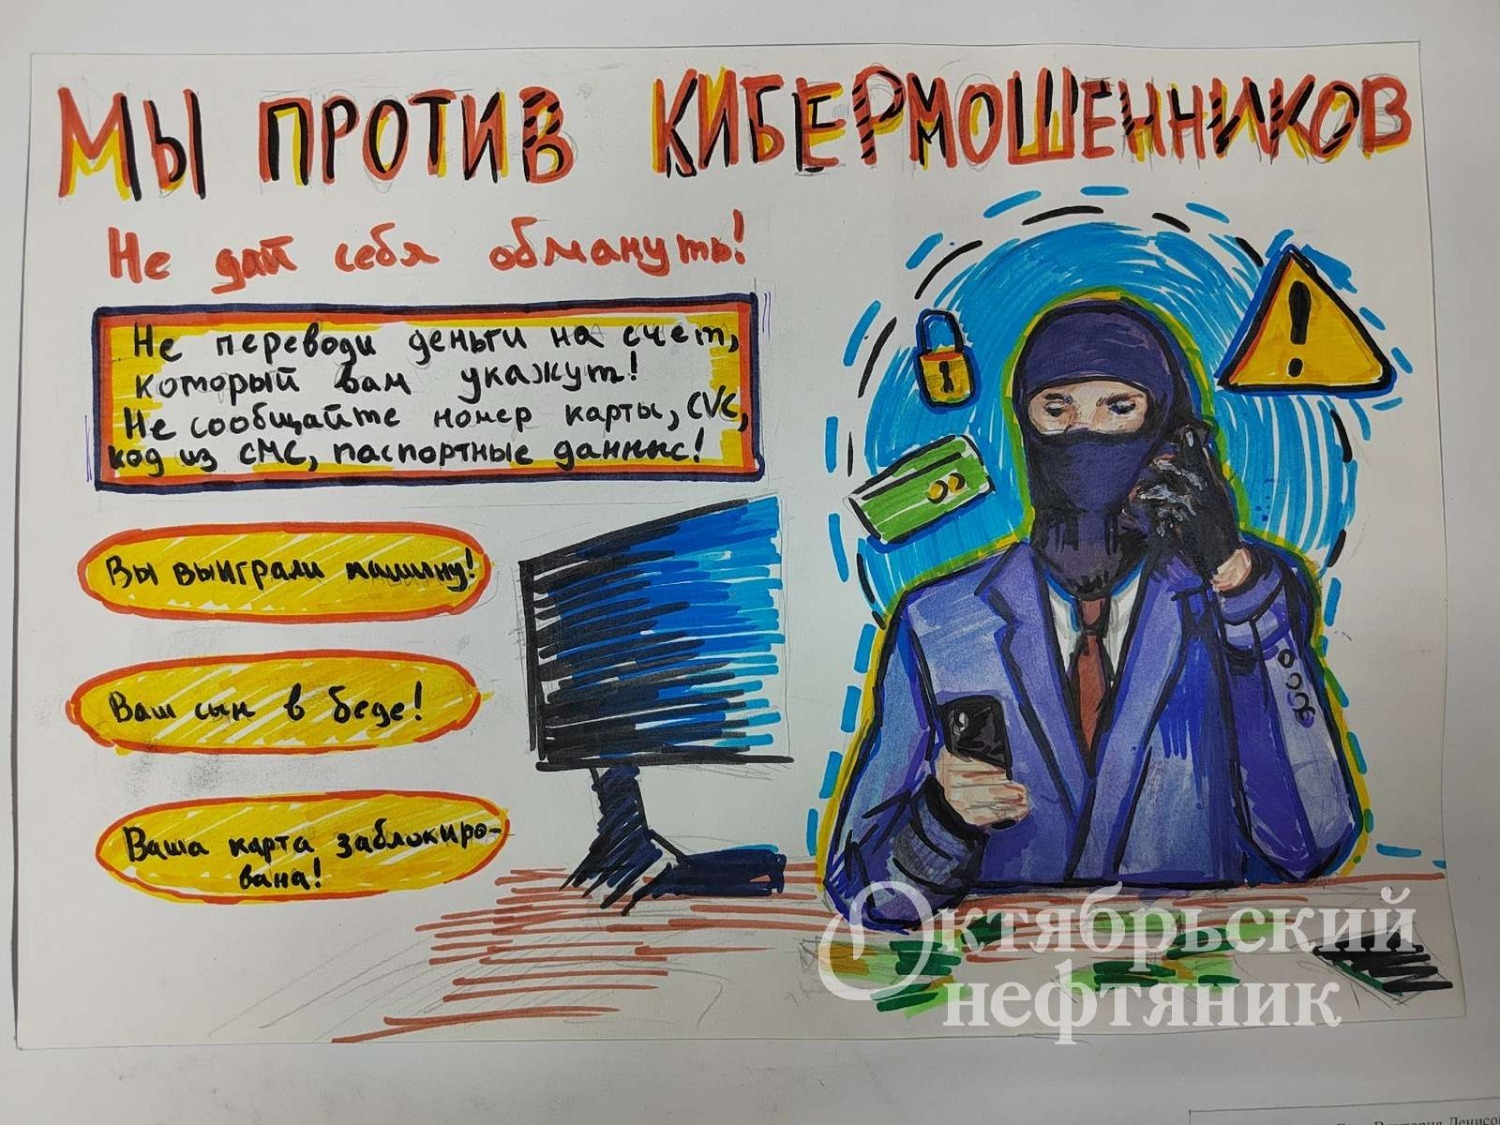 МЫ ПРОТИВ КИБЕРМОШЕННИКОВ
Не дай себя обмануть!
Не переводи деньги на счет,
который вам укажут!
Не сообщайте номер карты, CVC,
код из СМС, паспортные данные!
Вы выиграли машину!
Ваш сын в беде!
Ваша карта заблокиро-
вана!
Октябрьский
нефтяник